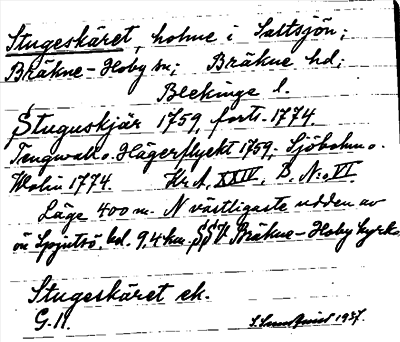 Stugeskäret, holme i Saltsjön;
Bräkne-Hoby sn; Bräkne hd;
Blekinge l.
Stuguskjär 1759, forts. 1774.
Tengwall o. Hägerflyckt 1759; Sjöbohm o.
Wolin 1774. Kr A, XXIV, B, N:o VI.
Läge 400 m. N västligaste udden av
ön Spjutsö bd. 9,4 km SSV Bräkne-Hoby kyrk.
Stugeskäret ek.
G. N. 1937.